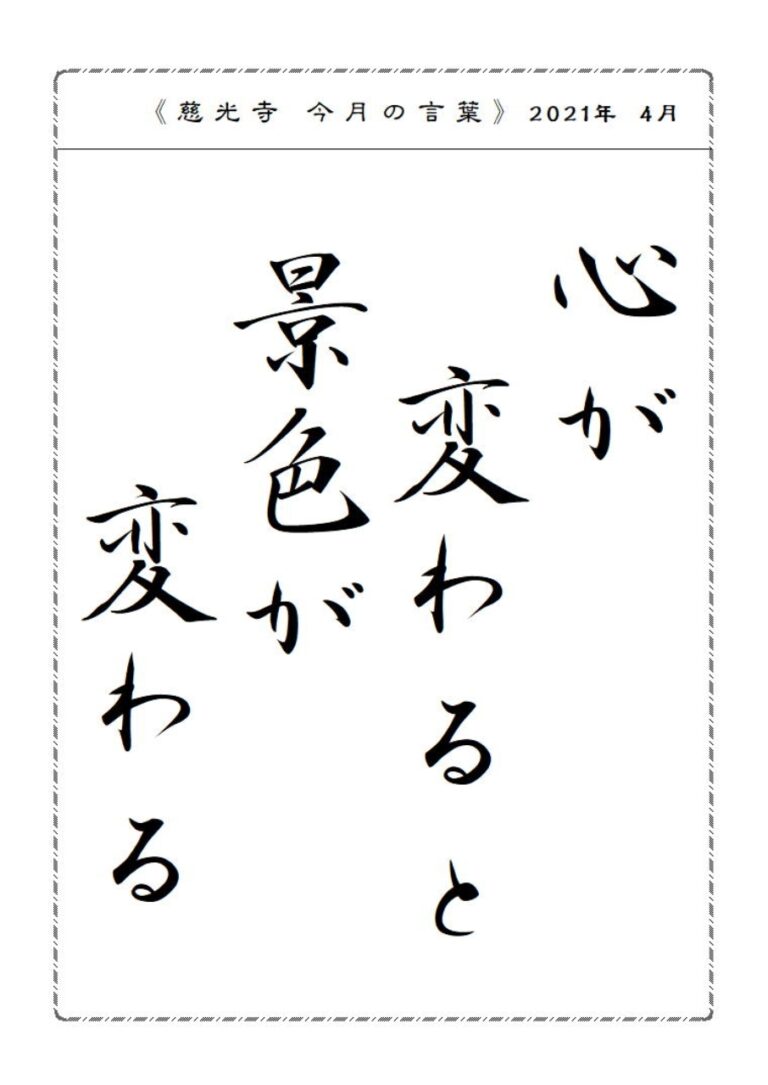 《慈光寺 今月の言葉》 2021年 4月
心が
変わると
景色が
変わる